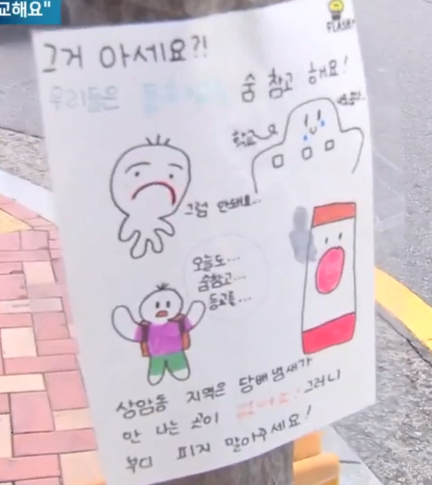 교해요"
FLASH
그거 아세요?!
우리들은 숨 참고 해요!
학교
그럼 안돼요...
오늘도...
숨참고...
등교를...
상암동 지역은 담배 냄새가
안 나는 곳이 없어요! 그러니
부디 피지 말아주세요!